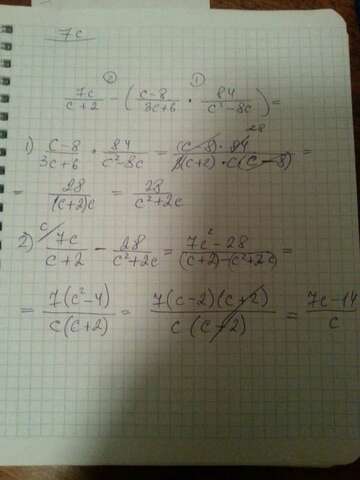 7c
② ①
7c/(c+2) - ((c-8)/(3c+6) · 84/(c²-8c)) =
1) (c-8)/(3c+6) · 84/(c²-8c) = ((c-8)·84 28)/(3(c+2)·c(c-8)) =
= 28/((c+2)c) = 28/(c²+2c)
2) c/ 7c/(c+2) - 28/(c²+2c) = (7c²-28)/((c+2)-(c²+2c)) =
= 7(c²-4)/(c(c+2)) = 7(c-2)(c+2)/(c(c+2)) = (7c-14)/c